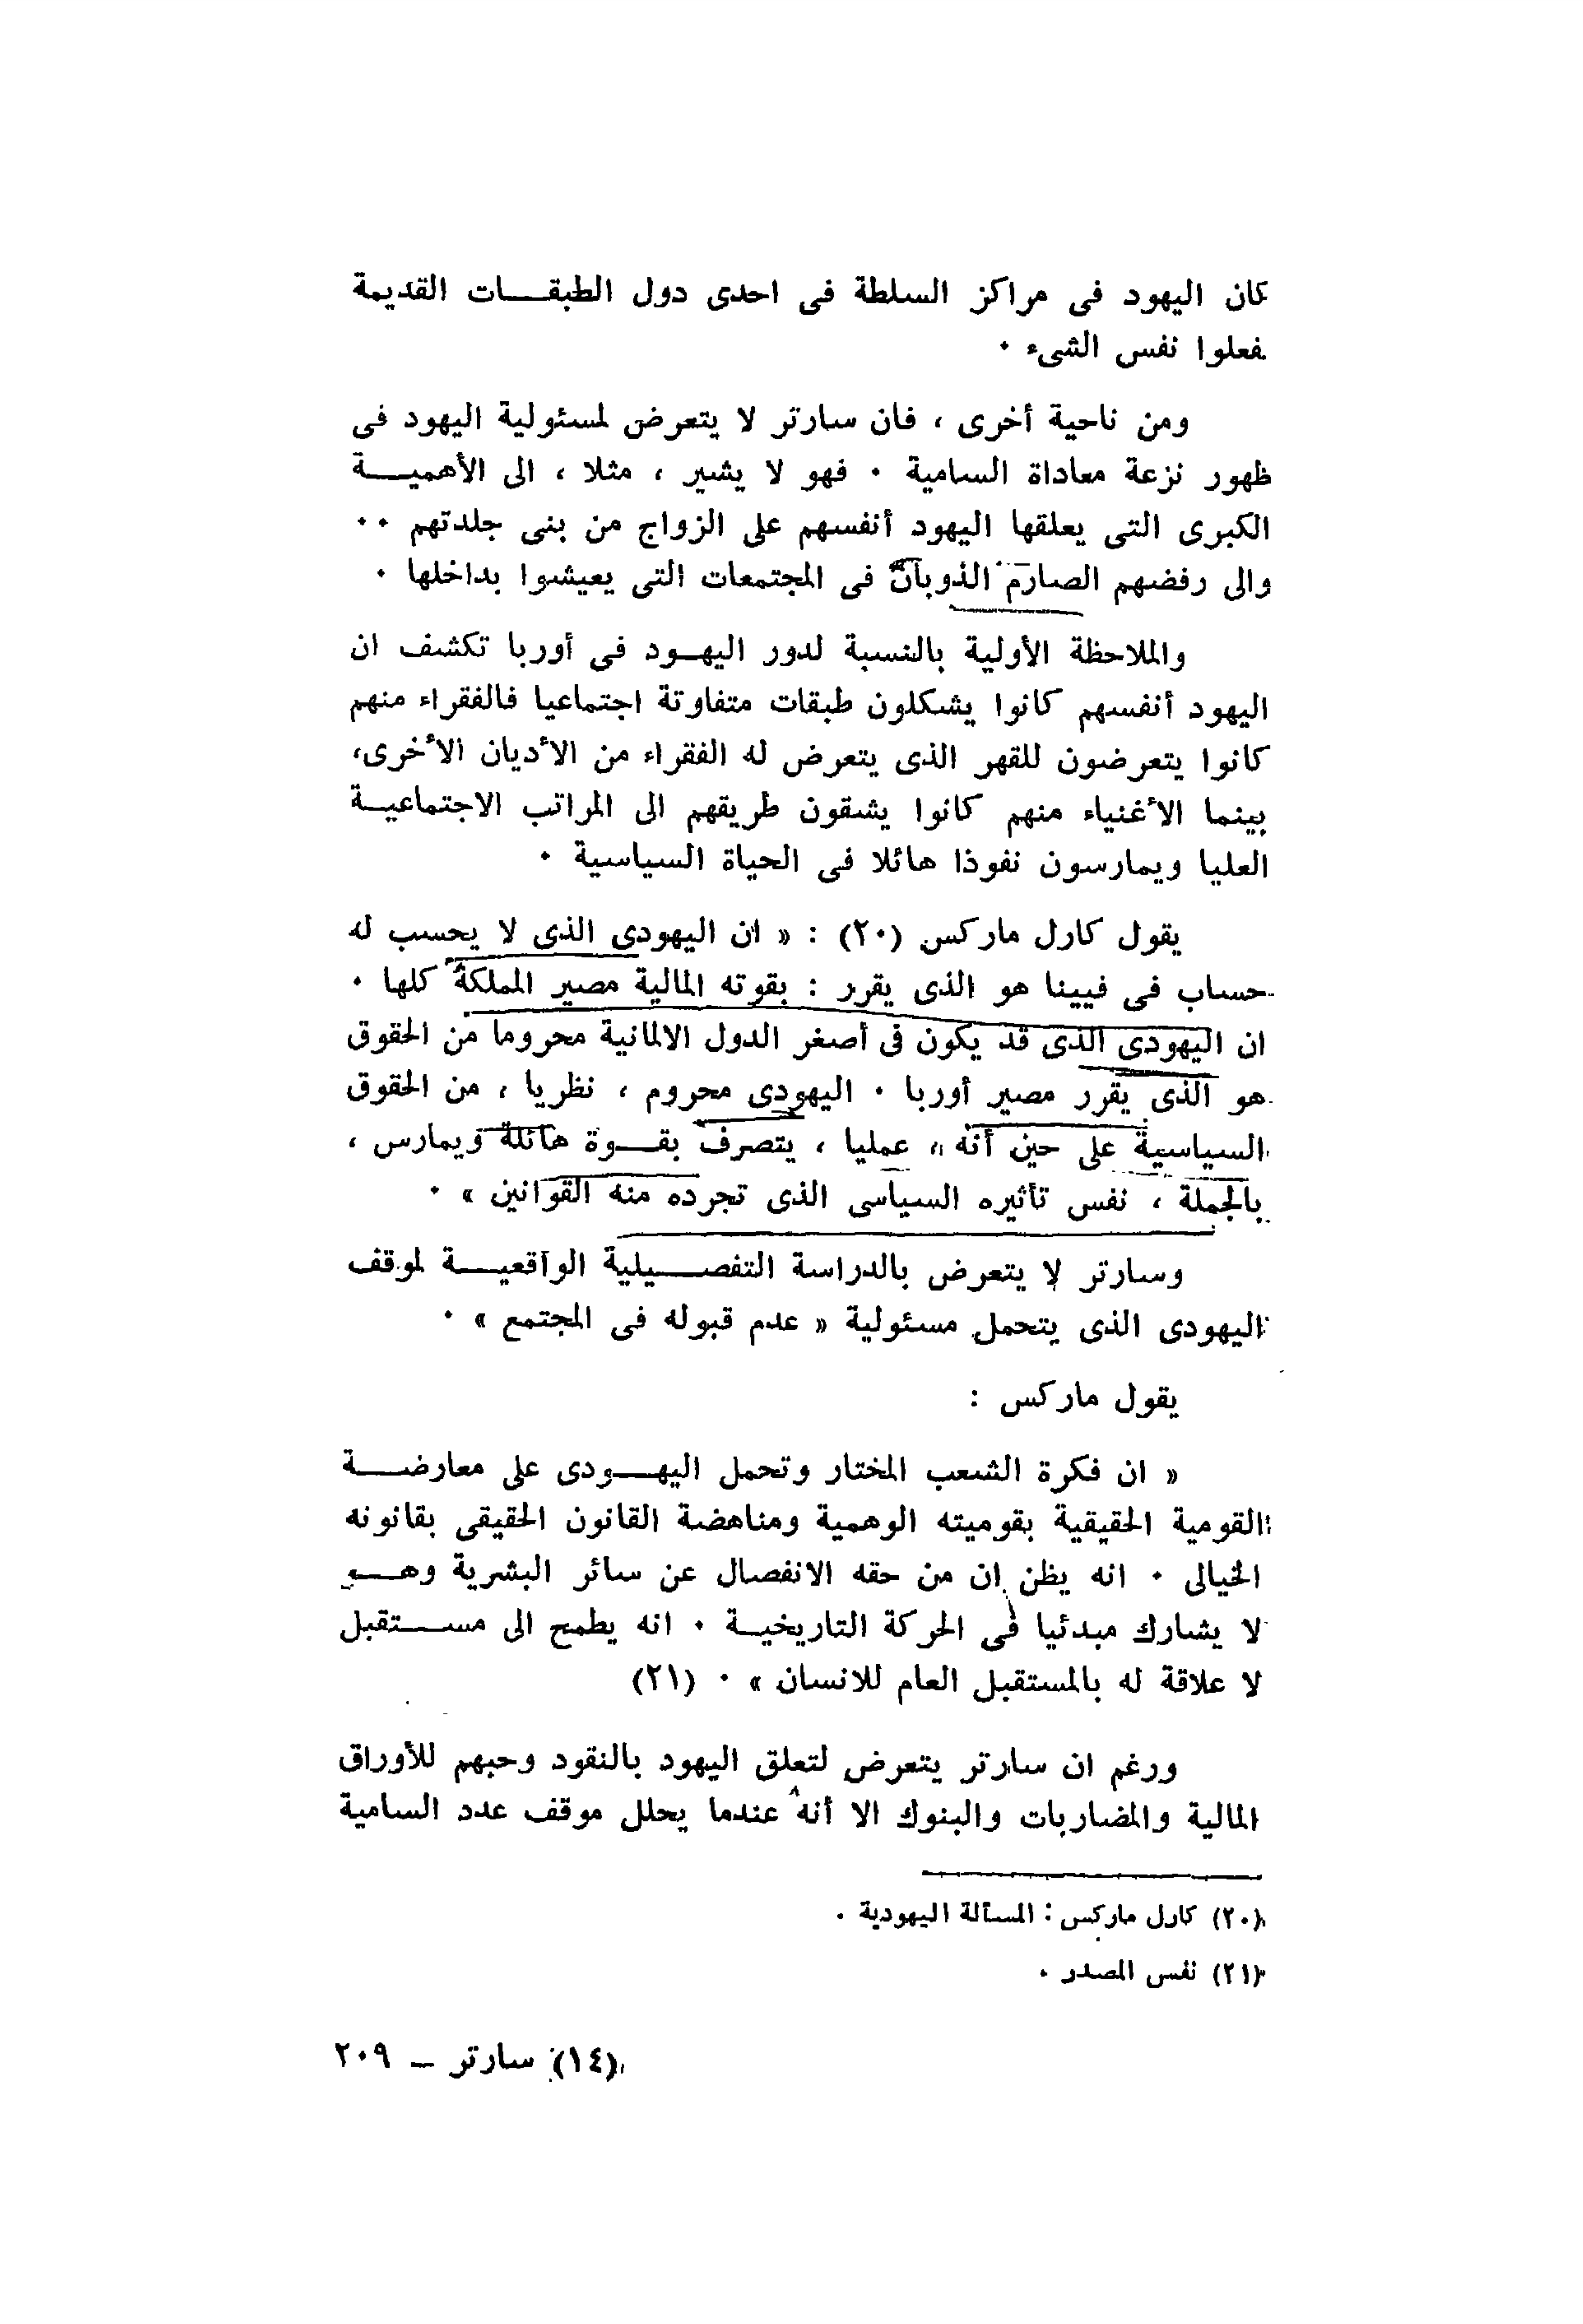 كان اليهود فى مراكز السلطة فى احدى دول الطبقات القديمة
فعلوا نفس الشىء ٠
ومن ناحية أخرى ، فان سارتر لا يتعرض لمسئولية اليهود فى
ظهور نزعة معاداة السامية ٠ فهو لا يشير ، مثلا ، الى الأهمية
الكبرى التى يعلقها اليهود أنفسهم على الزواج من بنى جلدتهم ٠٠
والى رفضهم الصارم الذوبان فى المجتمعات التى يعيشوا بداخلها ٠
والملاحظة الأولية بالنسبة لدور اليهود فى أوربا تكشف ان
اليهود أنفسهم كانوا يشكلون طبقات متفاوتة اجتماعيا فالفقراء منهم
كانوا يتعرضون للقهر الذى يتعرض له الفقراء من الأديان الأخرى،
بينما الأغنياء منهم كانوا يشقون طريقهم الى المراتب الاجتماعية
العليا ويمارسون نفوذا هائلا فى الحياة السياسية ٠
يقول كارل ماركس (٢٠) : « ان اليهودى الذى لا يحسب له
حساب فى فيينا هو الذى يقرر : بقوته المالية مصير المملكة كلها ٠
ان اليهودى الذى قد يكون فى أصغر الدول الالمانية محروما من الحقوق
هو الذى يقرر مصير أوربا ٠ اليهودى محروم ، نظريا ، من الحقوق
السياسية على حين أنه ، عمليا ، يتصرف بقوة هائلة ويمارس ،
بالجملة ، نفس تأثيره السياسى الذى تجرده منه القوانين » ٠
وسارتر لا يتعرض بالدراسة التفصيلية الواقعية لموقف
اليهودى الذى يتحمل مسئولية « عدم قبوله فى المجتمع » ٠
يقول ماركس :
« ان فكرة الشعب المختار وتحمل اليهودى على معارضة
القومية الحقيقية بقوميته الوهمية ومناهضة القانون الحقيقى بقانونه
الخيالى ٠ انه يظن ان من حقه الانفصال عن سائر البشرية وهو
لا يشارك مبدئيا فى الحركة التاريخية ٠ انه يطمح الى مستقبل
لا علاقة له بالمستقبل العام للانسان » ٠ (٢١)
ورغم ان سارتر يتعرض لتعلق اليهود بالنقود وحبهم للأوراق
المالية والمضاربات والبنوك الا أنه عندما يحلل موقف عدد السامية
(٢٠) كارل ماركس : المسألة اليهودية ٠
(٢١) نفس المصدر ٠
(١٤) سارتر – ٢٠٩